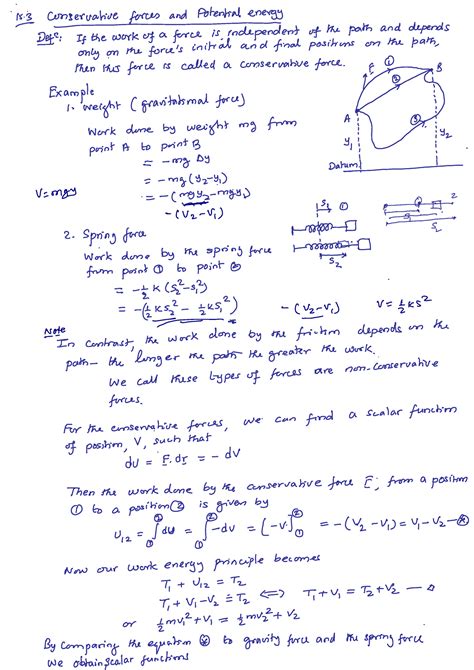 15.3 Conservative forces and Potential energy
Defn: If the work of a force is independent of the path and depends
only on the force's initial and final positions on the path,
then this force is called a conservative force.
Example
1. Weight (gravitational force)
Work done by weight mg from
point A to point B
= -mg Δy
= -mg (y2-y1)
V=mgy
= -(mgy2-mgy1)
-(V2-V1)
F
①
②
③
A
B
y1
y2
Datum
2. Spring force
Work done by the spring force
from point ① to point ②
= -½ K (S2²-S1²)
= -(½ KS2² - ½ KS1²)
-(V2-V1) V = ½ KS²
S1 ①
S2
2
Note
In contrast, the work done by the friction depends on the
path- the longer the path the greater the work.
We call these types of forces are non-conservative
forces.
For the conservative forces, we can find a scalar function
of position, V, such that
dU = F.dr = -dV
Then the work done by the conservative force F, from a position
① to a position ② is given by
U12 = ∫①② dU = ∫①② -dV = [-V]①② = -(V2-V1) = V1-V2 —⊗
Now our work energy principle becomes
T1 + U12 = T2
T1 + V1 - V2 = T2 ⟺ T1 + V1 = T2 + V2
or ½ mv1² + V1 = ½ mv2² + V2
By Comparing the equation ⊗ to gravity force and the spring force
We obtain scalar functions